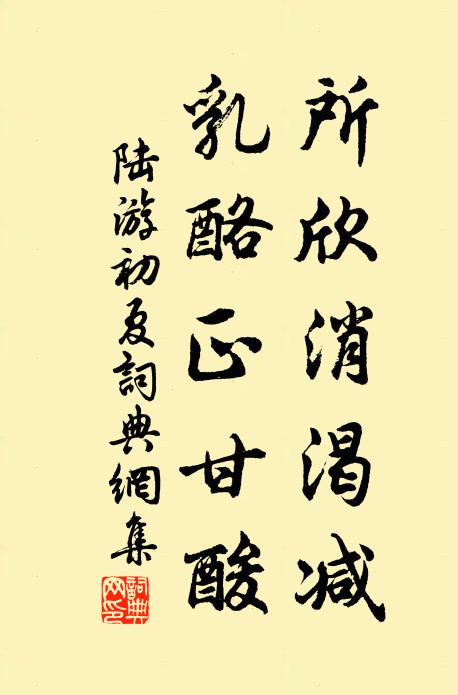 所欣消渴减
乳酪正甘酸
陆游初夏詞典網集
詞典
网印